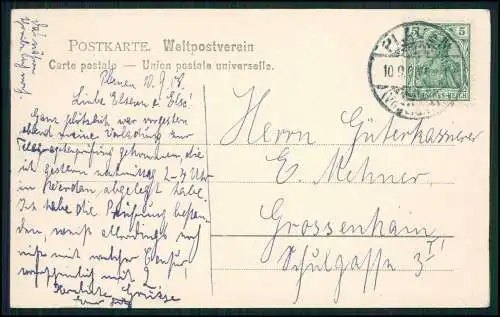 POSTKARTE. Weltpostverein
Carte postale — Union postale universelle.
Plauen 10.9.
Liebe Eltern u. Else!
Ganz plötzlich war vorgestern
abend meine Vorladung zur
gekommen, die
ich gestern nachmittag 2-7 Uhr
in Werdau abgelegt habe.
Ich habe die Prüfung bestan-
den, weiß allerdings noch
nicht mit welcher Censur
Herzliche Grüße
PLAUEN
10.9.
5
Herrn Güterkassierer
E. Mehner
Grossenhain
Schulgasse 3 I